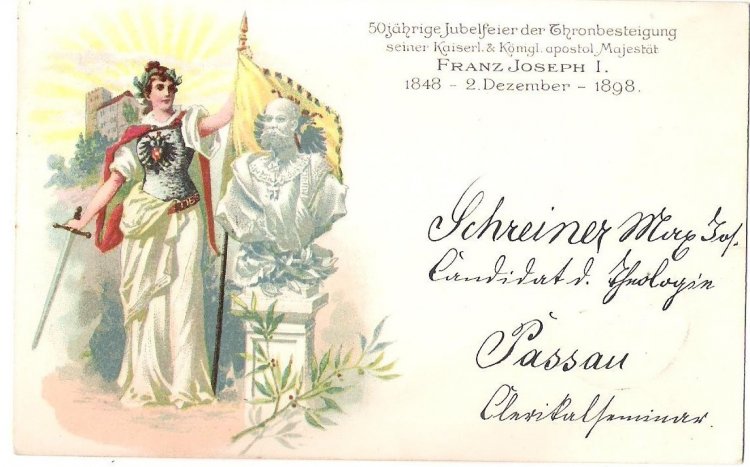 50jährige Jubelfeier der Thronbesteigung
seiner Kaiserl. & Königl. apostol. Majestät
FRANZ JOSEPH I.
1848 – 2. Dezember – 1898.
Schreiner Max Jos.
Candidat d. Theologie
Passau
Clerikalseminar.